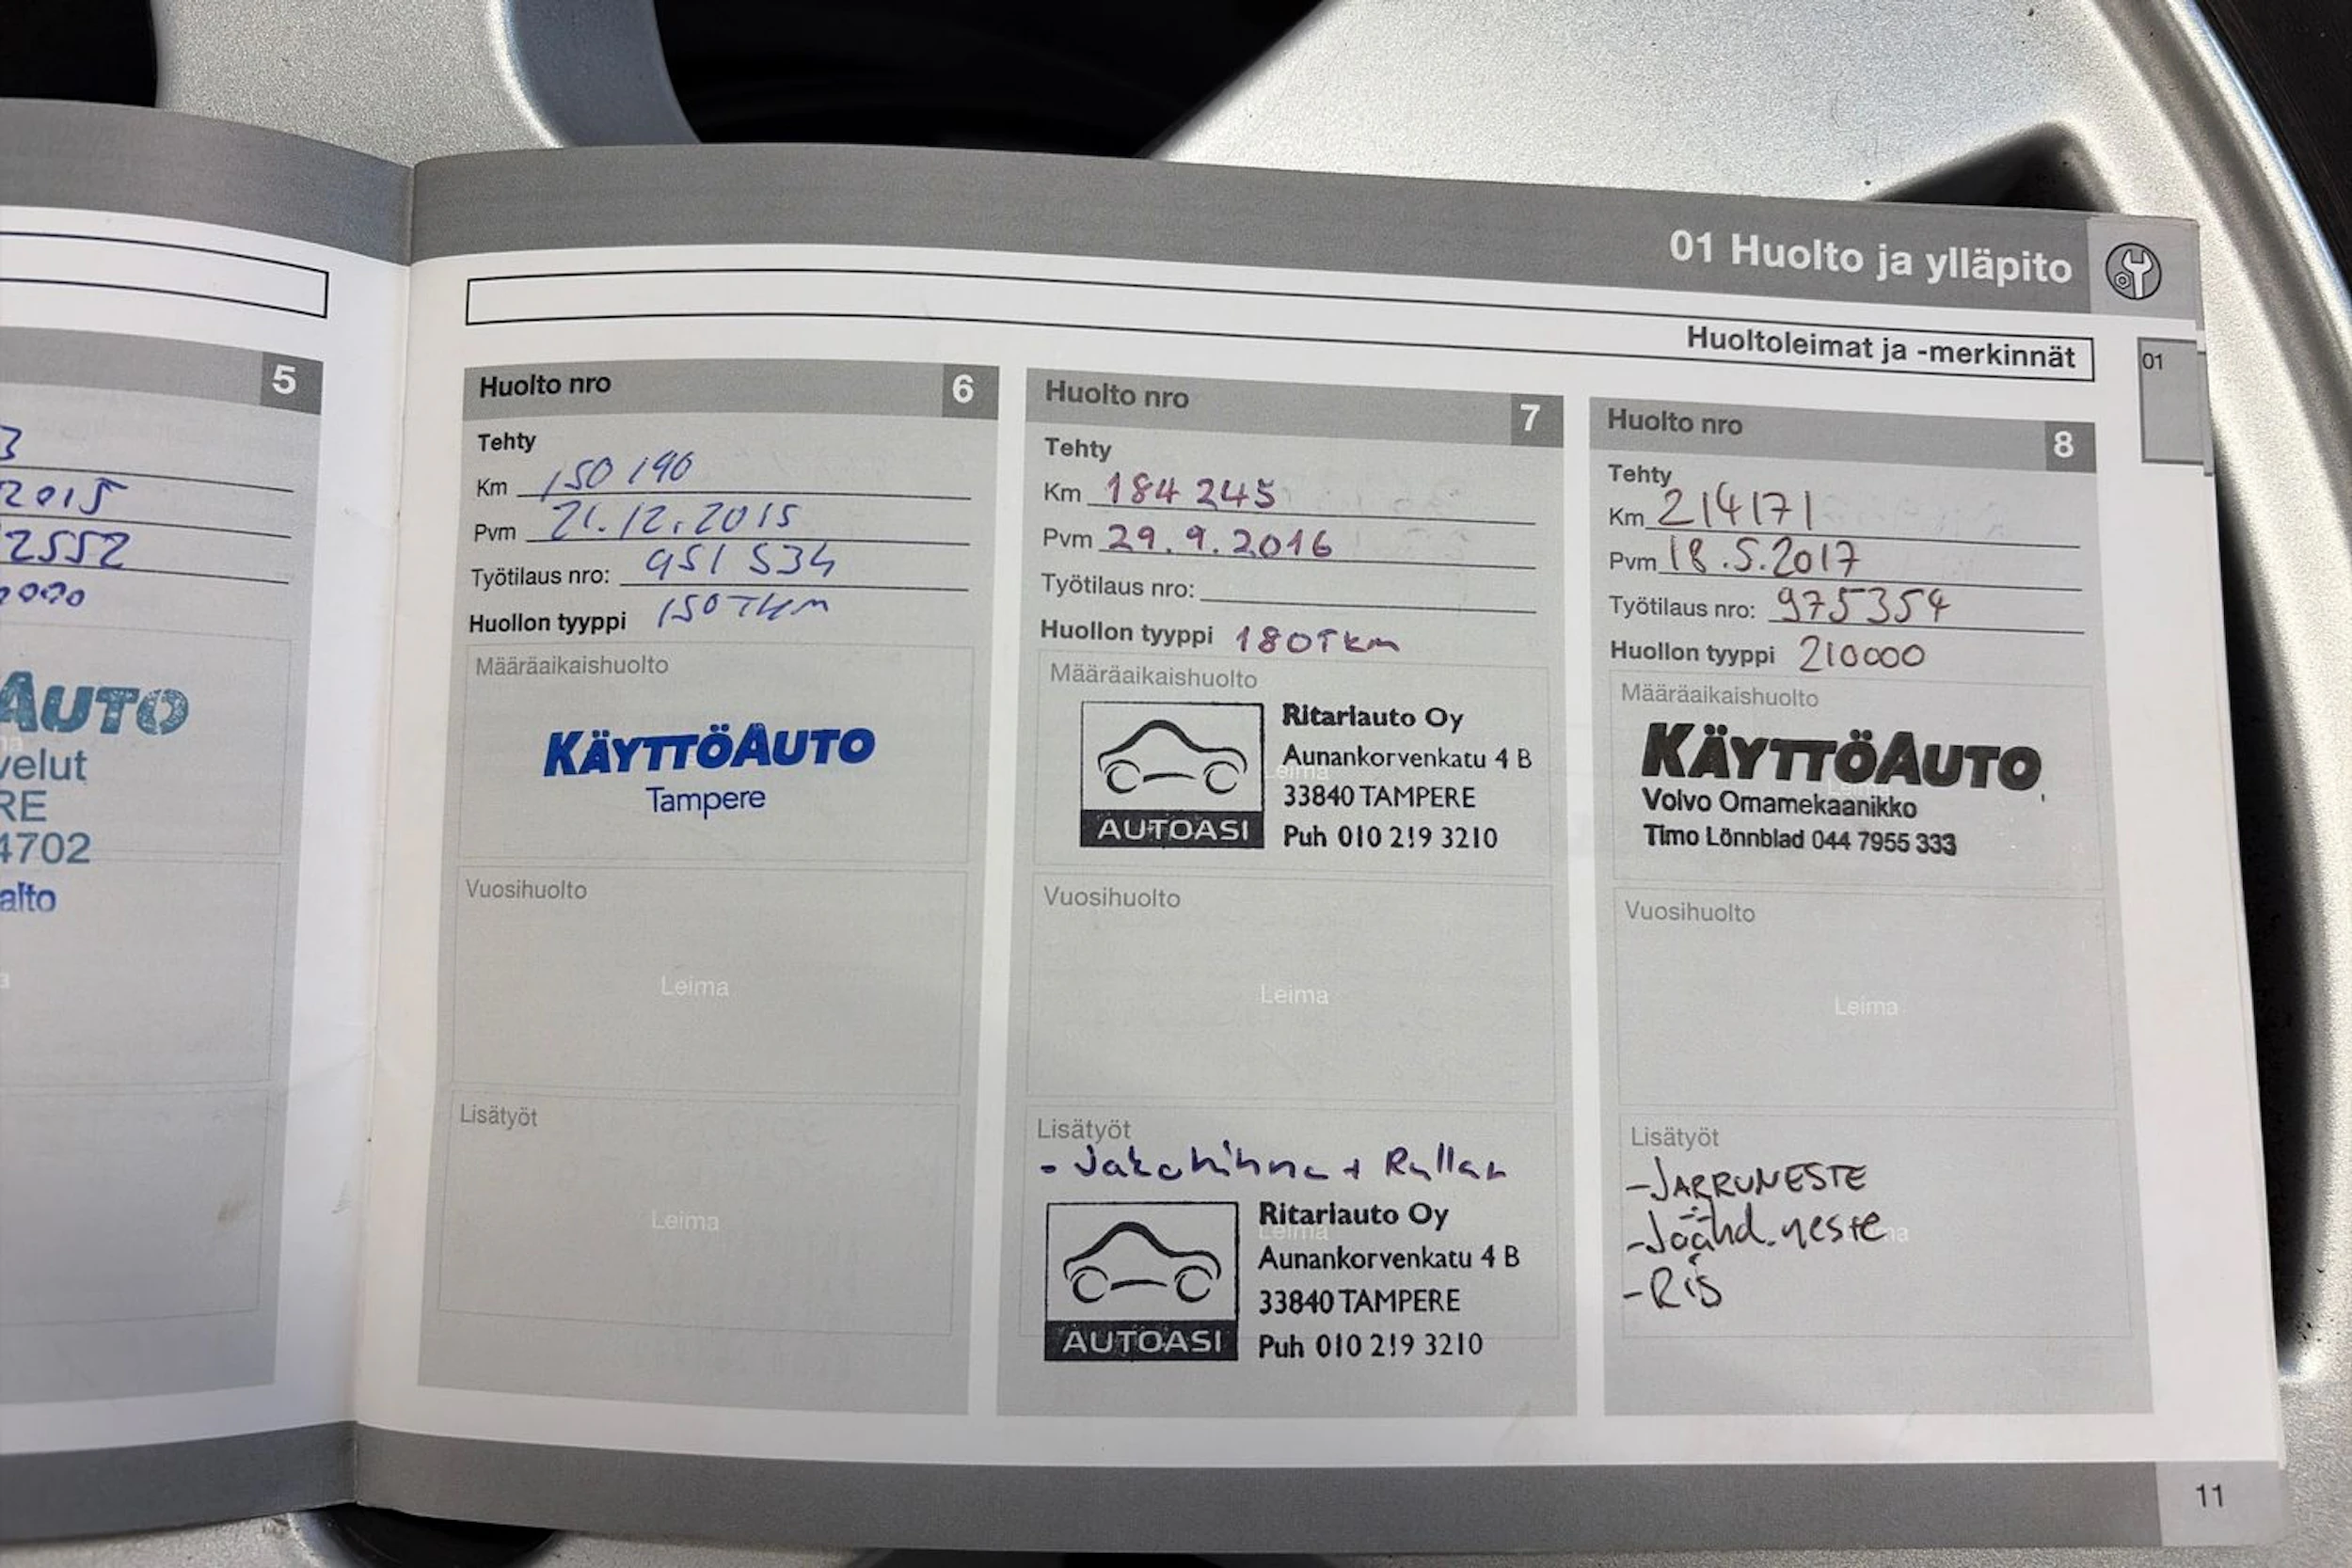 01 Huolto ja ylläpito
Huoltoleimat ja -merkinnät
01
5
3
2015
2552
AUTO
velut
RE
4702
alto
Huolto nro 6
Tehty
Km 150 190
Pvm 21.12.2015
Työtilaus nro: 951 534
Huollon tyyppi 150 TKM
Määräaikaishuolto
KÄYTTÖAUTO
Tampere
Vuosihuolto
Leima
Lisätyöt
Leima
Huolto nro 7
Tehty
Km 184 245
Pvm 29.9.2016
Työtilaus nro:
Huollon tyyppi 180Tkm
Määräaikaishuolto
Ritariauto Oy
Aunankorvenkatu 4 B
Leima
33840 TAMPERE
AUTOASI Puh 010 219 3210
Vuosihuolto
Leima
Lisätyöt
- Jakohihna + Rullat
Ritariauto Oy
Leima
Aunankorvenkatu 4 B
33840 TAMPERE
AUTOASI Puh 010 219 3210
Huolto nro 8
Tehty
Km 214171
Pvm 18.5.2017
Työtilaus nro: 975354
Huollon tyyppi 210000
Määräaikaishuolto
KÄYTTÖAUTO
Leima
Volvo Omamekaanikko
Timo Lönnblad 044 7955 333
Vuosihuolto
Leima
Lisätyöt
-JARRUNESTE
-Jäähd.neste
-RiS
11